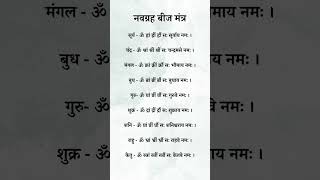 नवग्रह बीज मंत्र
सूर्य - ॐ ह्रां ह्रीं ह्रौं सः सूर्याय नमः ।
चंद्र - ॐ श्रां श्रीं श्रौं सः चन्द्रमसे नमः ।
मंगल - ॐ क्रां क्रीं क्रौं सः भौमाय नमः ।
बुध - ॐ ब्रां ब्रीं ब्रौं सः बुधाय नमः ।
गुरु- ॐ ग्रां ग्रीं ग्रौं सः गुरवे नमः ।
शुक्र - ॐ द्रां द्रीं द्रौं सः शुक्राय नमः ।
शनि - ॐ प्रां प्रीं प्रौं सः शनैश्चराय नमः ।
राहु - ॐ भ्रां भ्रीं भ्रौं सः राहवे नमः ।
केतु - ॐ स्त्रां स्त्रीं स्त्रौं सः केतवे नमः ।